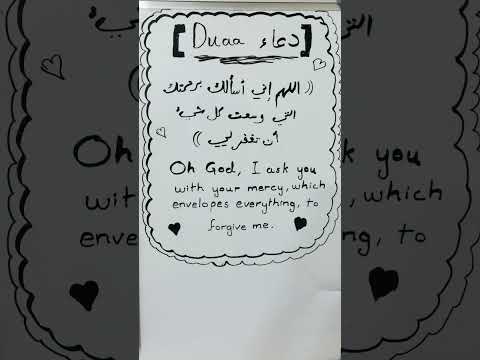 [ Duaa دعاء ]
(( اللهم إني أسألك برحمتك
التي وسعت كل شيء
أن تغفر لي ))
Oh God, I ask you
with your mercy, which
envelopes everything, to
forgive me.